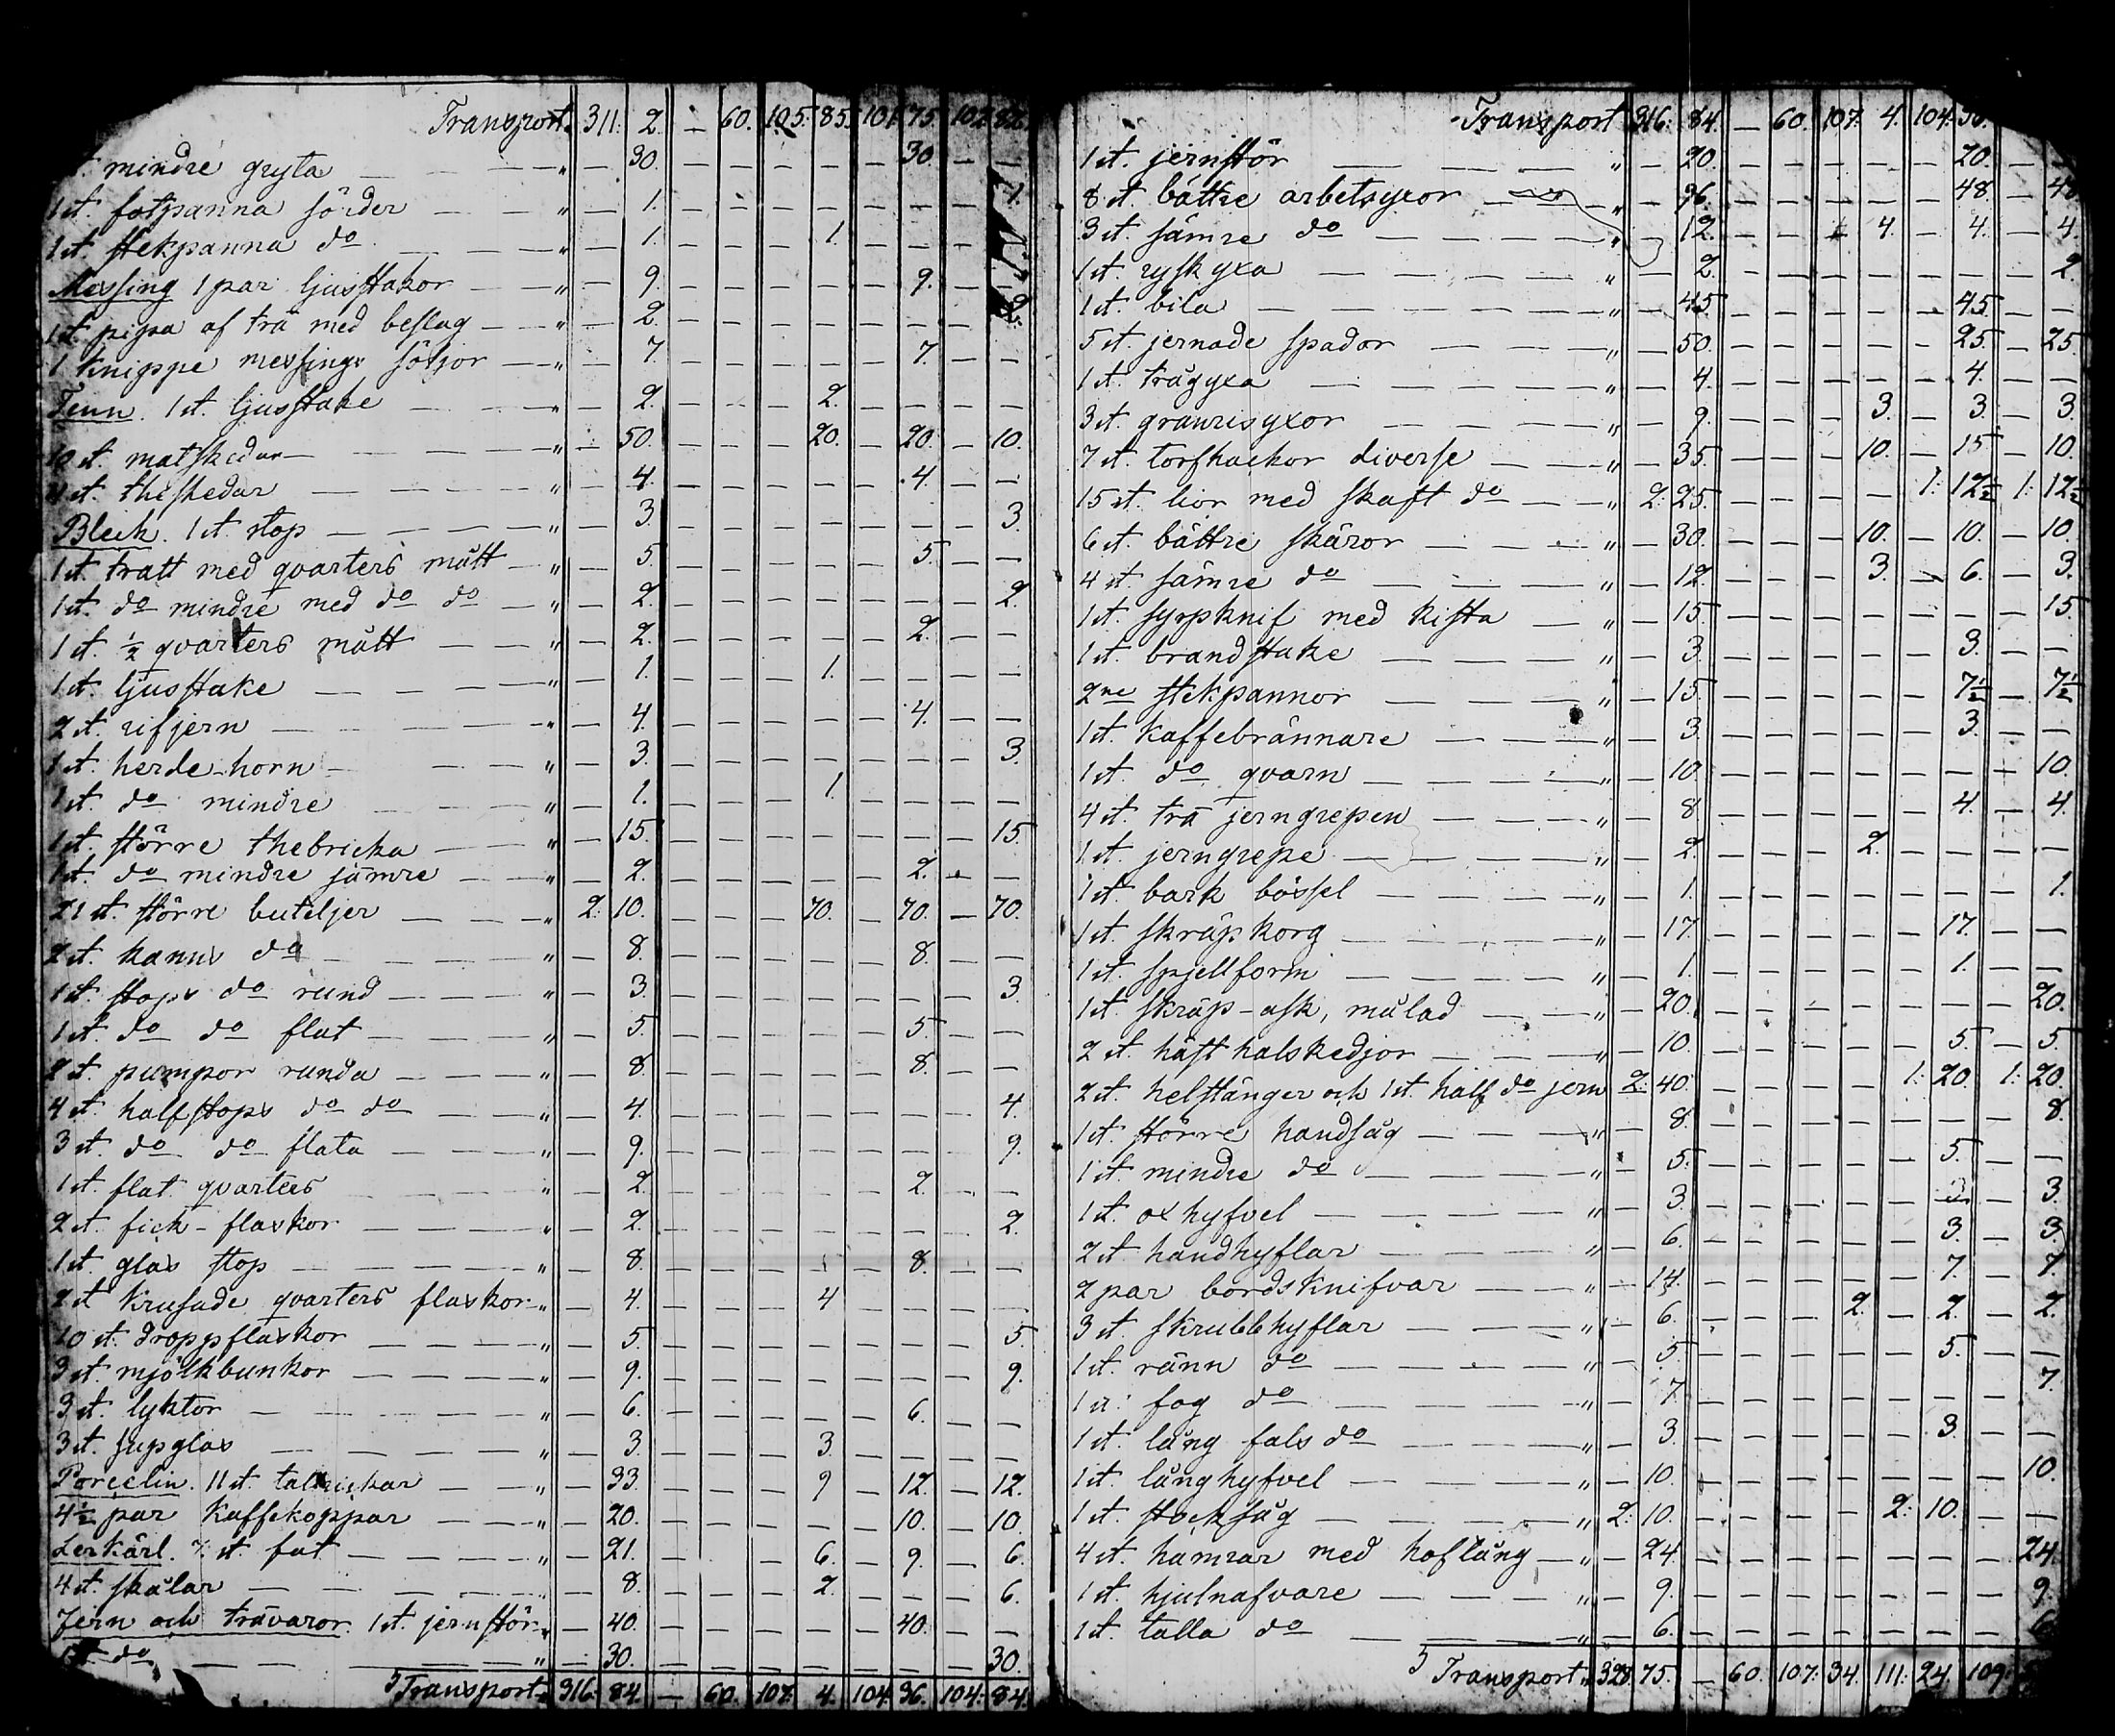 Transport 311: 2. — 60. 105: 85. 101: 75. 102: 82.
mindre gryta — — — " — 30. — — — — — 30. — —
1 st. fotpanna sönder — — " — 1. — — — — — — — 1.
1 st. stekpanna do — — " — 1. — — — 1. — — — —
Messing 1 par ljusstakor — — " — 9. — — — — — 9. — —
1 st. pipa af trä med beslag — — " — 2. — — — — — — — 2.
1 knippe messings söljor — — " — 7. — — — — — 7. — —
Tenn. 1 st. ljusstake — — " — 2. — — — 2. — — — —
10 st. matskedar — — — " — 50. — — — 20. — 20. — 10.
4 st. theskedar — — — " — 4. — — — — — 4. — —
Bleck. 1 st. stop — — — " — 3. — — — — — — — 3.
1 st. tratt med qvarters mått — " — 5. — — — — — 5. — —
1 st. do mindre med do do — " — 2. — — — — — — — 2.
1 st. ½ qvarters mått — — " — 2. — — — — — 2. — —
1 st. ljusstake — — — " — 1. — — — 1. — — — —
2 st. rifjern — — — " — 4. — — — — — 4. — —
1 st. herde-horn — — — " — 3. — — — — — — — 3.
1 st. do mindre — — — " — 1. — — — 1. — — — —
1 st. större thebricka — — " — 15. — — — — — — — 15.
1 st. do mindre sämre — — " — 2. — — — — — 2. — —
21 st. större buteljer — — — " 2: 10. — — — 70. — 70. — 70.
2 st. kanns do — — — " — 8. — — — — — 8. — —
1 st. stops do rund — — — " — 3. — — — — — — — 3.
1 st. do do flat — — — " — 5. — — — — — 5. — —
2 st. pumpor runda — — — " — 8. — — — — — 8. — —
4 st. halfstops do do — — " — 4. — — — — — — — 4.
3 st. do do flata — — — " — 9. — — — — — — — 9.
1 st. flat qvarters — — — " — 2. — — — — — 2. — —
2 st. fick-flaskor — — — " — 2. — — — — — — — 2.
1 st. glas stop — — — " — 8. — — — — — 8. — —
2 st. krusade qvarters flaskor " — 4. — — — 4 — — — —
10 st. droppflaskor — — — " — 5. — — — — — — — 5.
3 st. mjölkbunkor — — — " — 9. — — — — — — — 9.
3 st. lyktor — — — " — 6. — — — — — 6. — —
3 st. supglas — — — " — 3. — — — 3. — — — —
Porcelin. 11 st. talrickar — — " — 33. — — — 9 — 12. — 12.
4½ par kaffekoppar — — " — 20. — — — — — 10. — 10.
Lerkärl. 7 st. fat — — — " — 21. — — — 6. — 9. — 6.
4 st. skålar — — — " — 8. — — — 2. — — — 6.
Jern och trävaror. 1 st. jernstör " — 40. — — — — — 40. — —
1 st. do — — — " — 30. — — — — — — — 30.
Transport " 316: 84. — 60. 107: 4. 104: 36. 104: 84.
Transport 316: 84. — 60. 107: 4. 104: 36.
1 st. jernstör — — — " — 20. — — — — — 20. — —
8 st. bättre arbetsyxor — " — 96. — — — — — 48. — 48.
3 st. sämre do — — — " — 12. — — — 4. — 4. — 4.
1 st. rysk yxa — — — " — 2. — — — — — — — 2.
1 st. bila — — — " — 45. — — — — — 45. — —
5 st. jernade spador — — — " — 50. — — — — — 25. — 25.
1 st. trägyxa — — — " — 4. — — — — — 4. — —
3 st. granrisyxor — — — " — 9. — — — 3. — 3. — 3.
7 st. torfhackor diverse — — " — 35. — — — 10. — 15. — 10.
15 st. lior med skaft do — — " 2: 25. — — — — 1: 12½ 1: 12½
6 st. bättre skäror — — — " — 30. — — — 10. — 10. — 10.
4 st. sämre do — — — " — 12. — — — 3. — 6. — 3.
1 st. syrpknif med kista — " — 15. — — — — — — — 15.
1 st. brandstake — — — " — 3. — — — — — 3. — —
2ne stekpannor — — — " — 15. — — — — — 7½ — 7½
1 st. kaffebrännare — — — " — 3. — — — — — 3. — —
1 st. do qvarn — — — " — 10. — — — — — — — 10.
4 st. trä jerngrepen — — — " — 8. — — — — — 4. — 4.
1 st. jerngrepe — — — " — 2. — — — 2. — — — —
1 st. bark bössel — — — " — 1. — — — — — — — 1.
1 st. skräpkorg — — — " — 17. — — — — — 17. — —
1 st. spjellform — — — " — 1. — — — — — 1. — —
1 st. skräp-ask, målad — — " — 20. — — — — — — — 20.
2 st. häst halskedjor — — — " — 10. — — — — — 5. — 5.
2 st. helstänger och 1 st. half do jern 2: 40. — — — — 1: 20. 1: 20.
1 st. större handsåg — — — " — 8. — — — — — — — 8.
1 st. mindre do — — — " — 5. — — — — — 5. — —
1 st. oxhyfvel — — — " — 3. — — — — — — 3.
2 st. handhyflar — — — " — 6. — — — — — 3. — 3.
2 par bordsknifvar — — " — 14. — — — — — 7. — 7.
3 st. skrubbhyflar — — — " — 6. — — — 2. — 2. — 2.
1 st. ränn do — — — " — 5. — — — — — 5. — —
1 st. fog do — — — " — 7. — — — — — — — 7.
1 st. lång fals do — — — " — 3. — — — — — 3. — —
1 st. långhyfvel — — — " — 10. — — — — — — — 10.
1 st. stocksåg — — — " 2: 10. — — — — 2: 10. — —
4 st. hamrar med hoftång — " — 24. — — — — — — — 24.
1 st. hjulnafvare — — — " — 9. — — — — — — — 9.
1 st. talla do — — — " — 6. — — — — — — — 6.
Transport " 328: 75. — 60. 107: 34. 111: 24. 109: